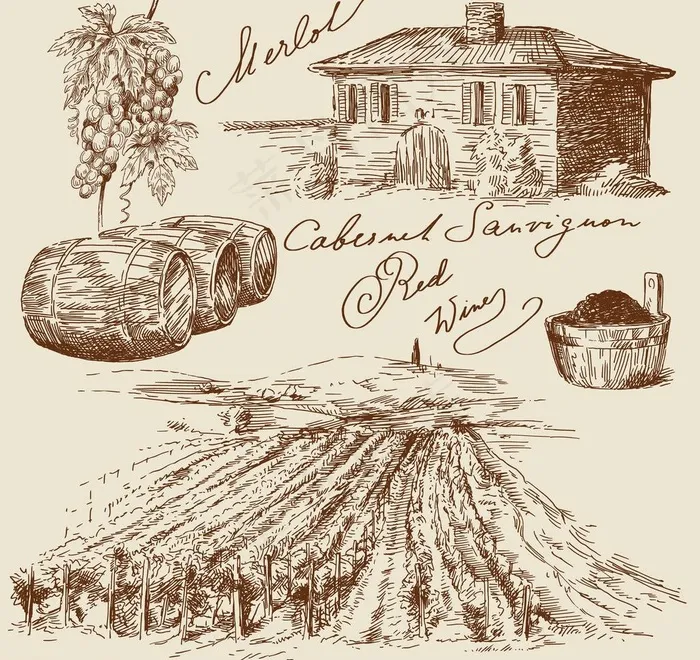 Merlot
Cabernet Sauvignon
Red
Wines